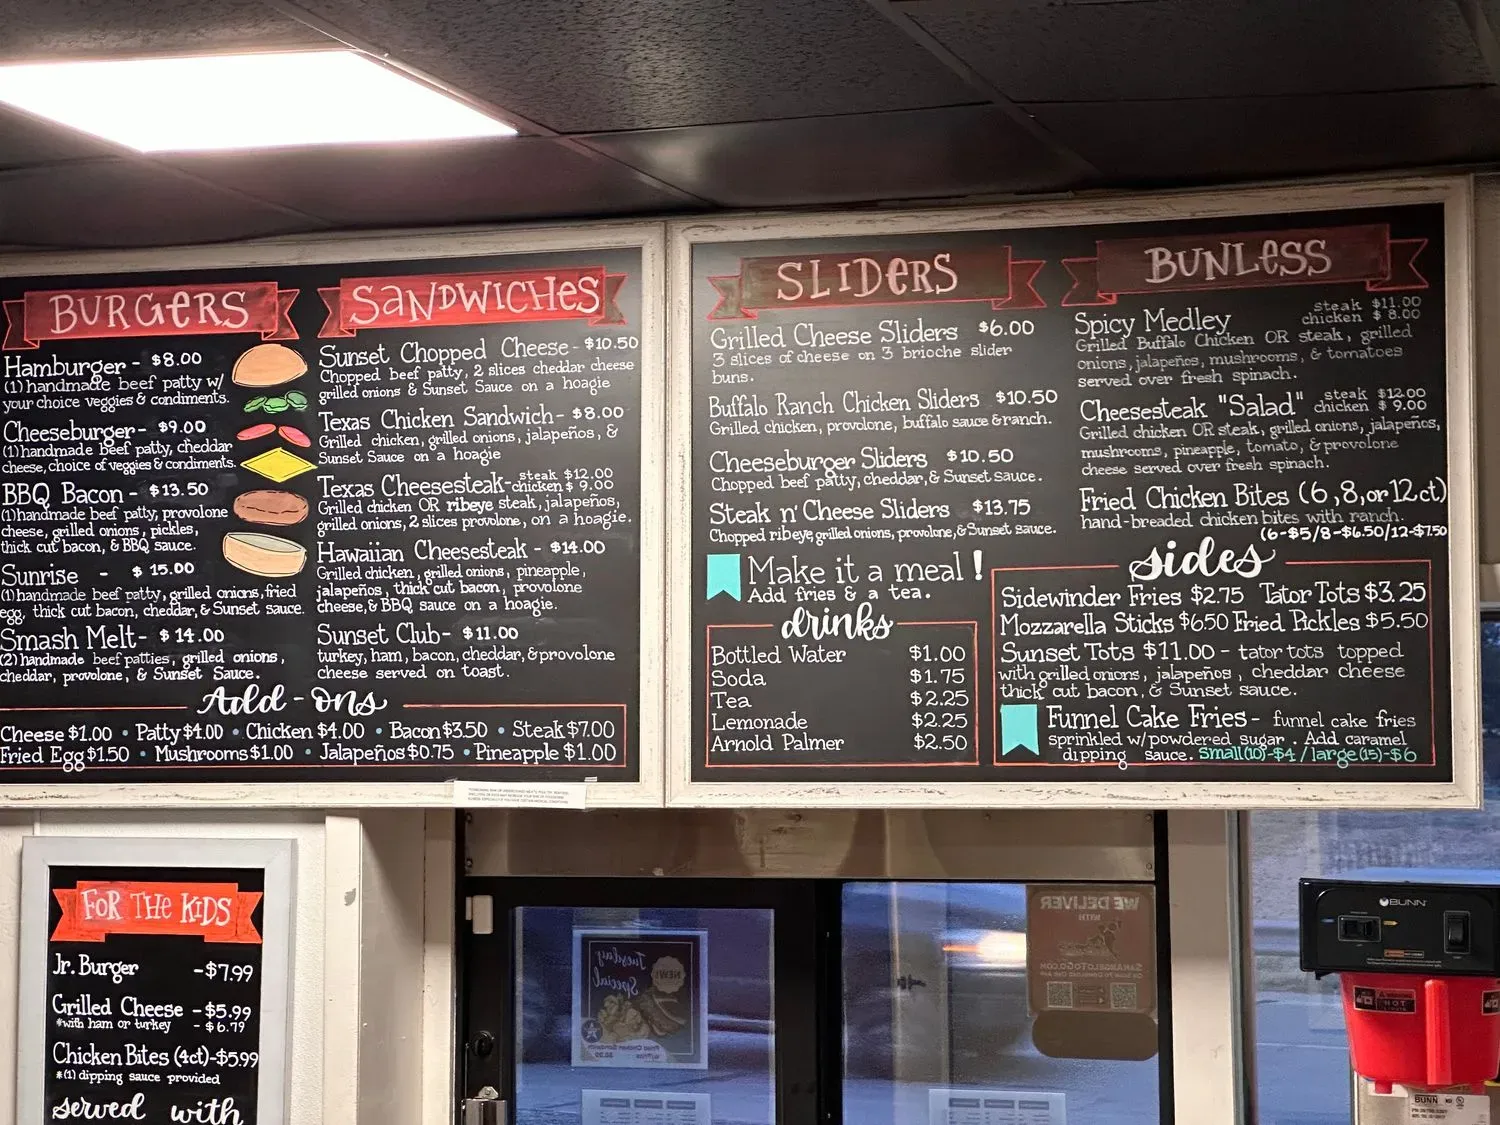 BURGERS
Hamburger - $8.00
(1) handmade beef patty w/
your choice veggies & condiments.
Cheeseburger - $9.00
(1) handmade beef patty, cheddar
cheese, choice of veggies & condiments.
BBQ Bacon - $13.50
(1) handmade beef patty, provolone
cheese, grilled onions, pickles,
thick cut bacon, & BBQ sauce.
Sunrise - $15.00
(1) handmade beef patty, grilled onions, fried
egg, thick cut bacon, cheddar, & Sunset sauce.
Smash Melt - $14.00
(2) handmade beef patties, grilled onions,
cheddar, provolone, & Sunset Sauce.
SANDWICHES
Sunset Chopped Cheese - $10.50
Chopped beef patty, 2 slices cheddar cheese
grilled onions & Sunset Sauce on a hoagie
Texas Chicken Sandwich - $8.00
Grilled chicken, grilled onions, jalapeños, &
Sunset Sauce on a hoagie
Texas Cheesesteak - steak $12.00
chicken $9.00
Grilled chicken OR ribeye steak, jalapeños,
grilled onions, 2 slices provolone, on a hoagie.
Hawaiian Cheesesteak - $14.00
Grilled chicken, grilled onions, pineapple,
jalapeños, thick cut bacon, provolone
cheese, & BBQ sauce on a hoagie.
Sunset Club - $11.00
turkey, ham, bacon, cheddar, & provolone
cheese served on toast.
Add-ons
Cheese $1.00 • Patty $4.00 • Chicken $4.00 • Bacon $3.50 • Steak $7.00
Fried Egg $1.50 • Mushrooms $1.00 • Jalapeños $0.75 • Pineapple $1.00
SLIDERS
Grilled Cheese Sliders $6.00
3 slices of cheese on 3 brioche slider
buns.
Buffalo Ranch Chicken Sliders $10.50
Grilled chicken, provolone, buffalo sauce & ranch.
Cheeseburger Sliders $10.50
Chopped beef patty, cheddar, & Sunset sauce.
Steak n' Cheese Sliders $13.75
Chopped ribeye, grilled onions, provolone, & Sunset sauce.
Make it a meal!
Add fries & a tea.
drinks
Bottled Water $1.00
Soda $1.75
Tea $2.25
Lemonade $2.25
Arnold Palmer $2.50
BUNLESS
Spicy Medley steak $11.00
chicken $8.00
Grilled Buffalo Chicken OR steak, grilled
onions, jalapeños, mushrooms, & tomatoes
served over fresh spinach.
Cheesesteak "Salad" steak $12.00
chicken $9.00
Grilled chicken OR steak, grilled onions, jalapeños,
mushrooms, pineapple, tomato, & provolone
cheese served over fresh spinach.
Fried Chicken Bites (6, 8, or 12 ct)
hand-breaded chicken bites with ranch.
(6-$5/8-$6.50/12-$7.50
sides
Sidewinder Fries $2.75 Tator Tots $3.25
Mozzarella Sticks $6.50 Fried Pickles $5.50
Sunset Tots $11.00 - tator tots topped
with grilled onions, jalapeños, cheddar cheese
thick cut bacon, & Sunset sauce.
Funnel Cake Fries - funnel cake fries
sprinkled w/ powdered sugar. Add caramel
dipping sauce. Small(10)-$4 / large(15)-$6
FOR THE KIDS
Jr. Burger -$7.99
Grilled Cheese -$5.99
*with ham or turkey -$6.79
Chicken Bites (4ct)-$5.99
*(1) dipping sauce provided
served with
NEW!
Tuesday
Special
WE DELIVER
WITH
SANANGELOTOGO.COM
BUNN
HOT
BUNN